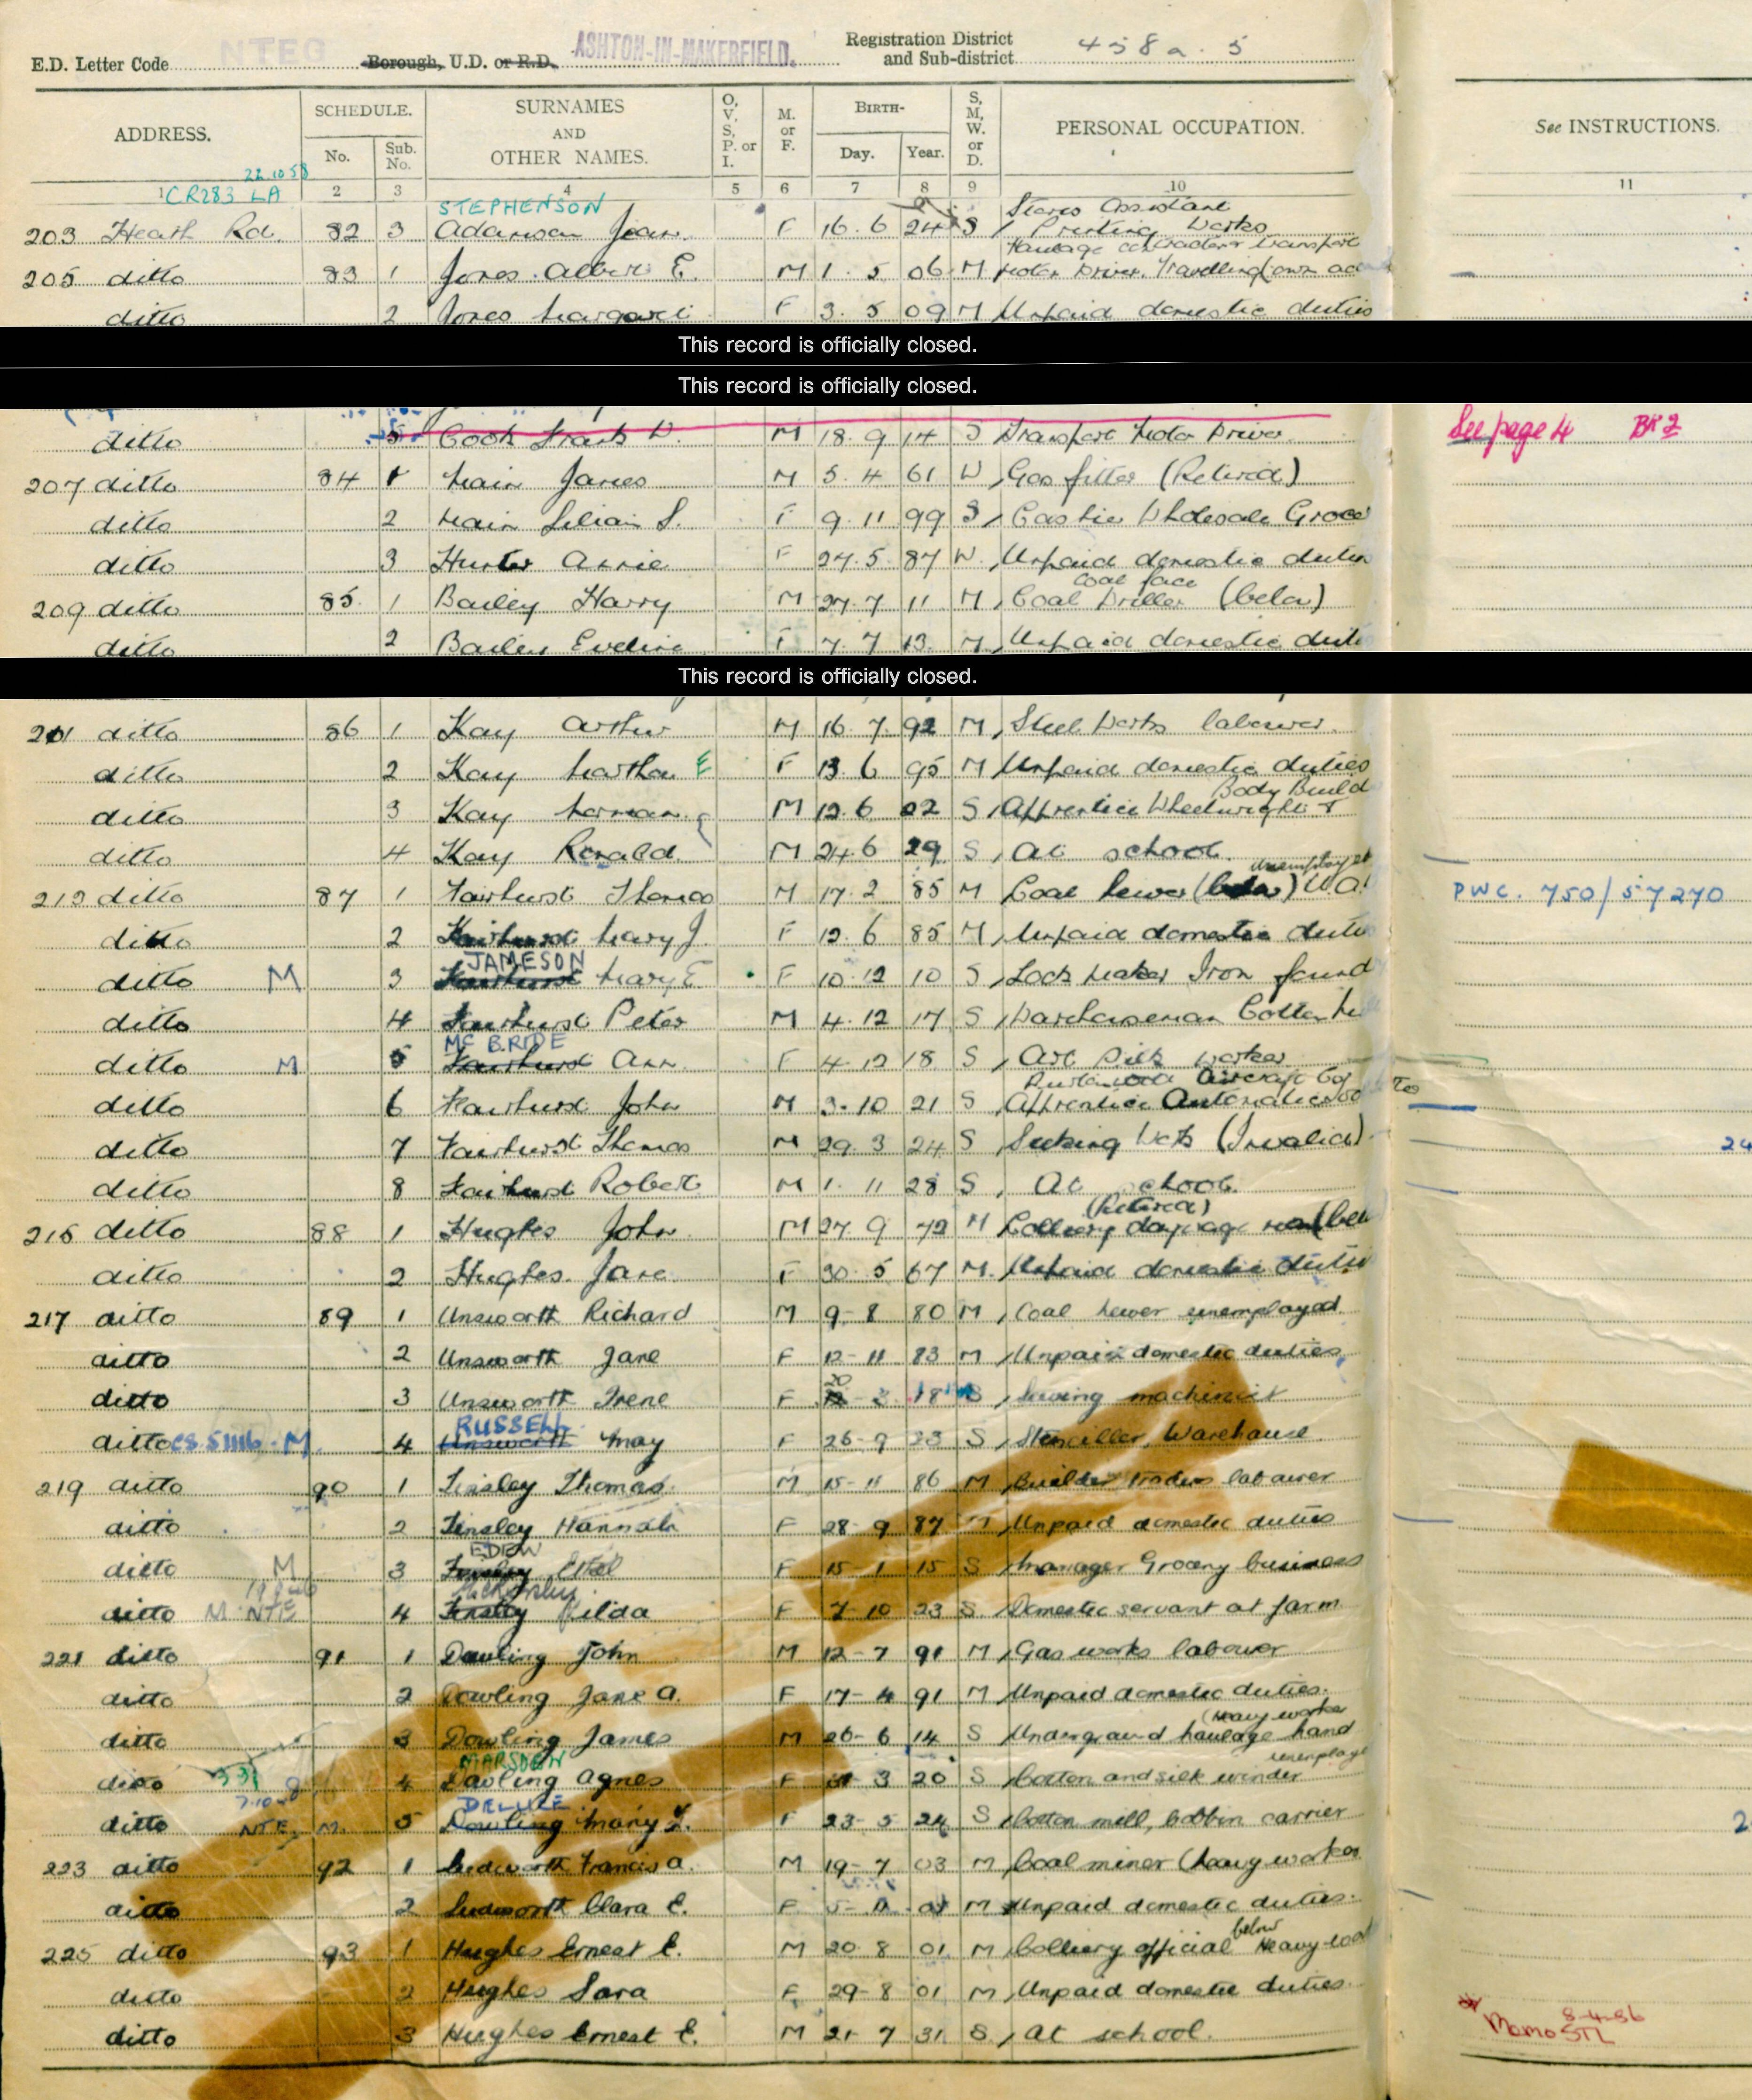 E.D. Letter Code NTEG Borough, U.D. or R.D. ASHTON-IN-MAKERFIELD. Registration District and Sub-district 458a. 5
ADDRESS. SCHEDULE. No. Sub. No. SURNAMES AND OTHER NAMES. O, V, S, P. or I. M. or F. BIRTH- Day. Year. S, M, W. or D. PERSONAL OCCUPATION. See INSTRUCTIONS.
22.10.58
1 CR283 LA 2 3 4 5 6 7 8 9 10 11
STEPHENSON Stores Assistant
203 Heath Rd. 82 3 Adamson Jean F 16. 6 24 S Printing Works
Haulage contractor Transport
205 ditto 83 1 Jones Albert E. M 1. 5 06 M Motor Driver. Travelling (own
ditto 2 Jones Margaret F 3. 5 09 M Unpaid domestic duties
This record is officially closed.
This record is officially closed.
ditto 5 Cook M 18. 9 14 S Transport Motor Driver See page 4 BK 2
207 ditto 84 1 Mair James M 5. 4 61 W Gas fitter (Retired)
ditto 2 Mair Lilian S. F 9. 11 99 S Wholesale
ditto 3 Hunter Annie F 27. 5 87 W Unpaid domestic duties
Coal face
209 ditto 85 1 Bailey Harry M 27. 7 11 M Coal Driller (below)
ditto 2 Bailey Eveline F 7. 7 13 M Unpaid domestic
This record is officially closed.
211 ditto 86 1 Kay Arthur M 16. 7. 92 M Steel Works labourer
ditto 2 Kay Martha E F 13. 6 95 M Unpaid domestic duties
Body Build
ditto 3 Kay Norman M 12. 6 22 S Apprentice Wheelwright
ditto 4 Kay Ronald M 24. 6 29 S At school
unemployed
213 ditto 87 1 Fairhurst Thomas M 17. 2 85 M Coal hewer (below) PWC. 750/57270
ditto 2 Fairhurst Mary J. F 12. 6 85 M Unpaid domestic
JAMESON
ditto M 3 Fairhurst Mary E F 10. 12 10 S Lock Maker Iron
ditto 4 Fairhurst Peter M 4. 12 17 S Warehouseman Cotton
MC BRIDE
ditto M 5 Fairhurst Ann F 4. 12 18 S Art Silk Worker
Aircraft
ditto 6 Fairhurst John M 3. 10 21 S Apprentice Automatic
ditto 7 Fairhurst Thomas M 29. 3 24 S Seeking Work (Invalid) 24
ditto 8 Fairhurst Robert M 1. 11 28 S At school
(Retired)
215 ditto 88 1 Hughes John M 27. 9 72 M Colliery day wage man
ditto 2 Hughes. Jane F 30. 5 67 M Unpaid domestic duties
217 ditto 89 1 Unsworth Richard M 9- 8 80 M Coal hewer unemployed
ditto 2 Unsworth Jane F 12- 11 83 M Unpaid domestic duties
20
ditto 3 Unsworth Irene F 3 18 S Sewing machinist
RUSSELL
ditto M 4 Unsworth May F 26- 9 23 S Stenciller, Warehouse
219 ditto 90 1 Tinsley Thomas M 15- 11 86 M Builders trades labourer
ditto 2 Tinsley Hannah F 28- 9 87 M Unpaid domestic duties
EDEN
ditto M 3 Tinsley Ethel F 15- 1 15 S Manager Grocery business
ditto M. NTE 4 Tinsley Hilda F 7- 10 23 S Domestic servant at farm
221 ditto 91 1 Dowling John M 12- 7 91 M Gas works labourer
ditto 2 Dowling Jane A. F 17- 4 91 M Unpaid domestic duties.
(Heavy worker
ditto 3 Dowling James M 26- 6 14 S Underground haulage hand
MARSDEN
ditto 4 Dowling Agnes F 3 20 S Cotton and silk winder
ditto NTE M. 5 Dowling Mary F 23- 5 24 S Cotton mill, bobbin carrier 2
223 ditto 92 1 Ludworth Francis A. M 19- 7 03 M Coal miner (heavy worker
ditto 2 Ludworth Clara E. F M Unpaid domestic duties.
below
225 ditto 93 1 Hughes Ernest E. M 20 8 01 M Colliery official Heavy
ditto 2 Hughes Sara F 29- 8 01 M Unpaid domestic duties.
ditto 3 Hughes Ernest E. M 21- 7 31 S At school.
8-4-56
Memo STL